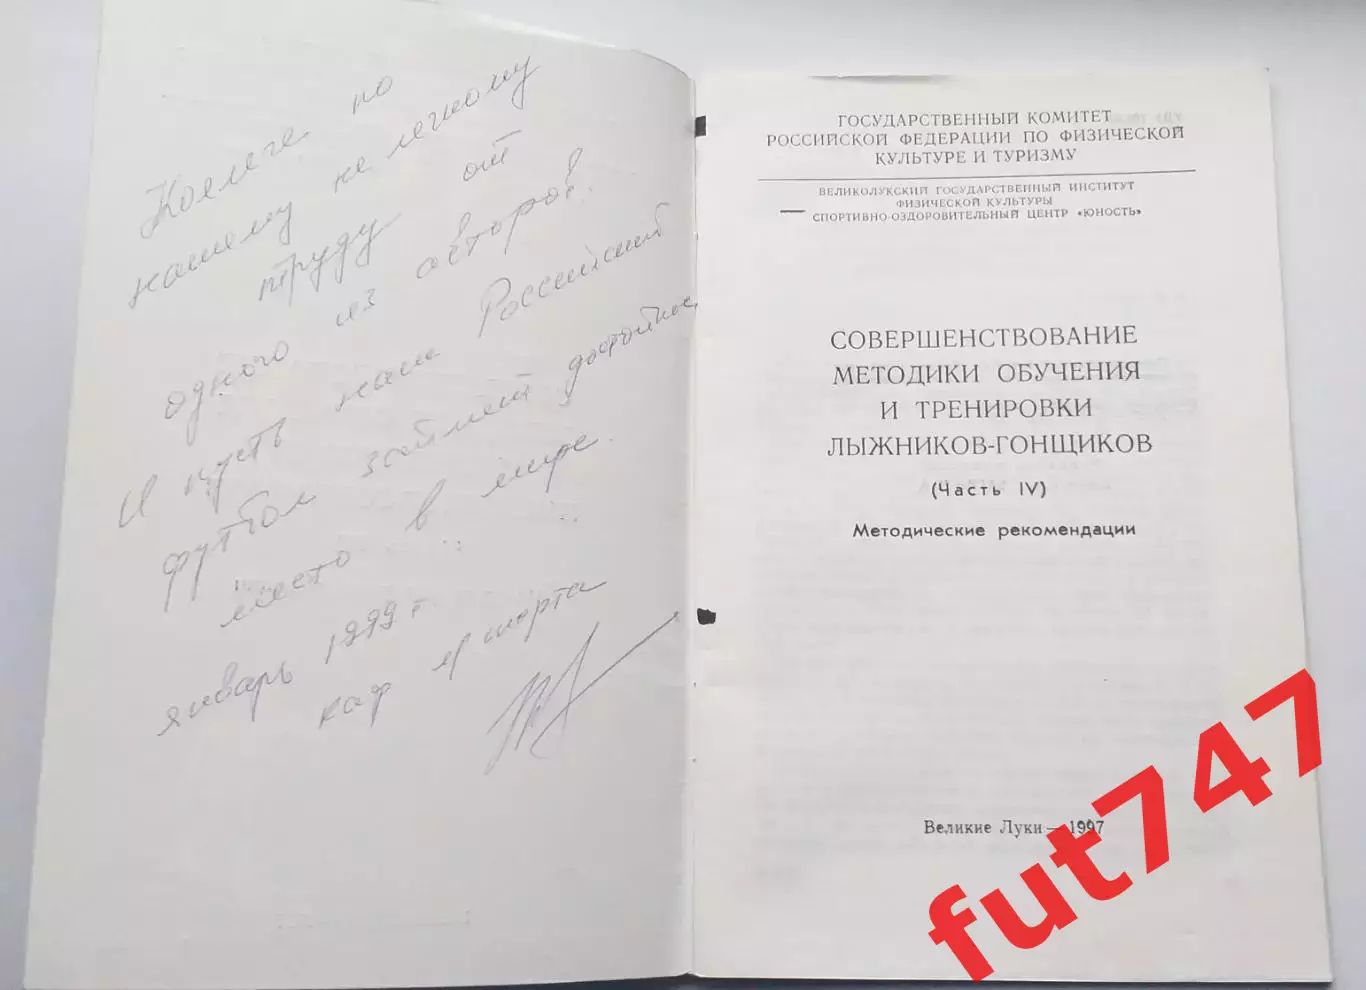 Коллеге по
нашему не легкому
труду от
одного из авторов.
И пусть наш Российский
футбол займет достойное
место в мире.
январь 1999 г
каф спорта
ГОСУДАРСТВЕННЫЙ КОМИТЕТ
РОССИЙСКОЙ ФЕДЕРАЦИИ ПО ФИЗИЧЕСКОЙ
КУЛЬТУРЕ И ТУРИЗМУ
ВЕЛИКОЛУКСКИЙ ГОСУДАРСТВЕННЫЙ ИНСТИТУТ
ФИЗИЧЕСКОЙ КУЛЬТУРЫ
СПОРТИВНО-ОЗДОРОВИТЕЛЬНЫЙ ЦЕНТР «ЮНОСТЬ»
СОВЕРШЕНСТВОВАНИЕ
МЕТОДИКИ ОБУЧЕНИЯ
И ТРЕНИРОВКИ
ЛЫЖНИКОВ-ГОНЩИКОВ
(Часть IV)
Методические рекомендации
Великие Луки — 1997
fut747